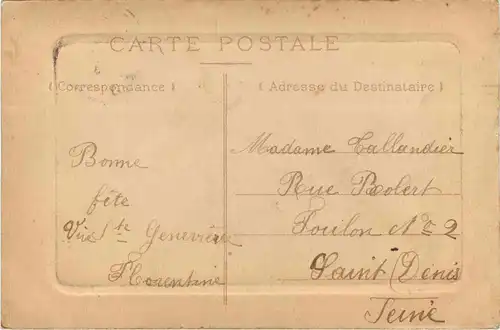 CARTE POSTALE
(Correspondance)
Bonne
fête
Ste Geneviève
Florentine
(Adresse du Destinataire)
Madame Tallandier
Rue
Toulon No 2
Saint Denis
Seine